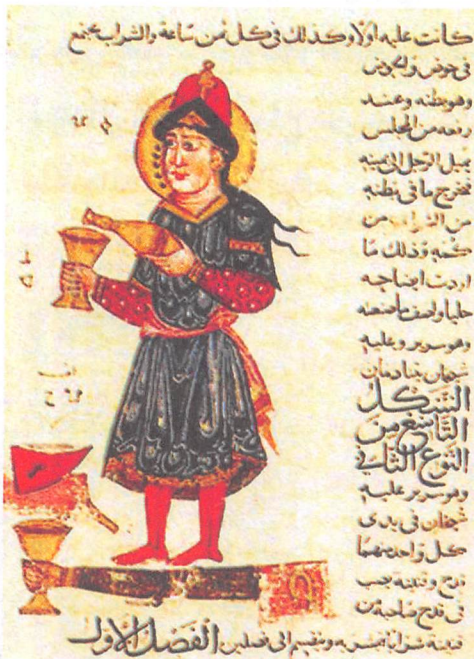 كانت عليه اولا وكذلك فى كل ثمن ساعة والشراب يجتمع
فى حوض والحوض
هو بطنه وعند
رفعه من المجلس
يميل الرجل الى يمينه
فيخرج ما فى بطنه
من الشراب من
كمه وذلك ما
اردت ايضاحه
جليا واصف ما صنعته
وهو سرير وعليه
شيخان نديمان
الشكل
التاسع من
النوع الثانى
وهو سرير عليه
شيخان فى يدى
كل واحد منهما
قدح وقنينة يصب
فى قدح صاحبه من
قنينة شرابا فيشربه وينقسم الى فصلين الفصل الاول